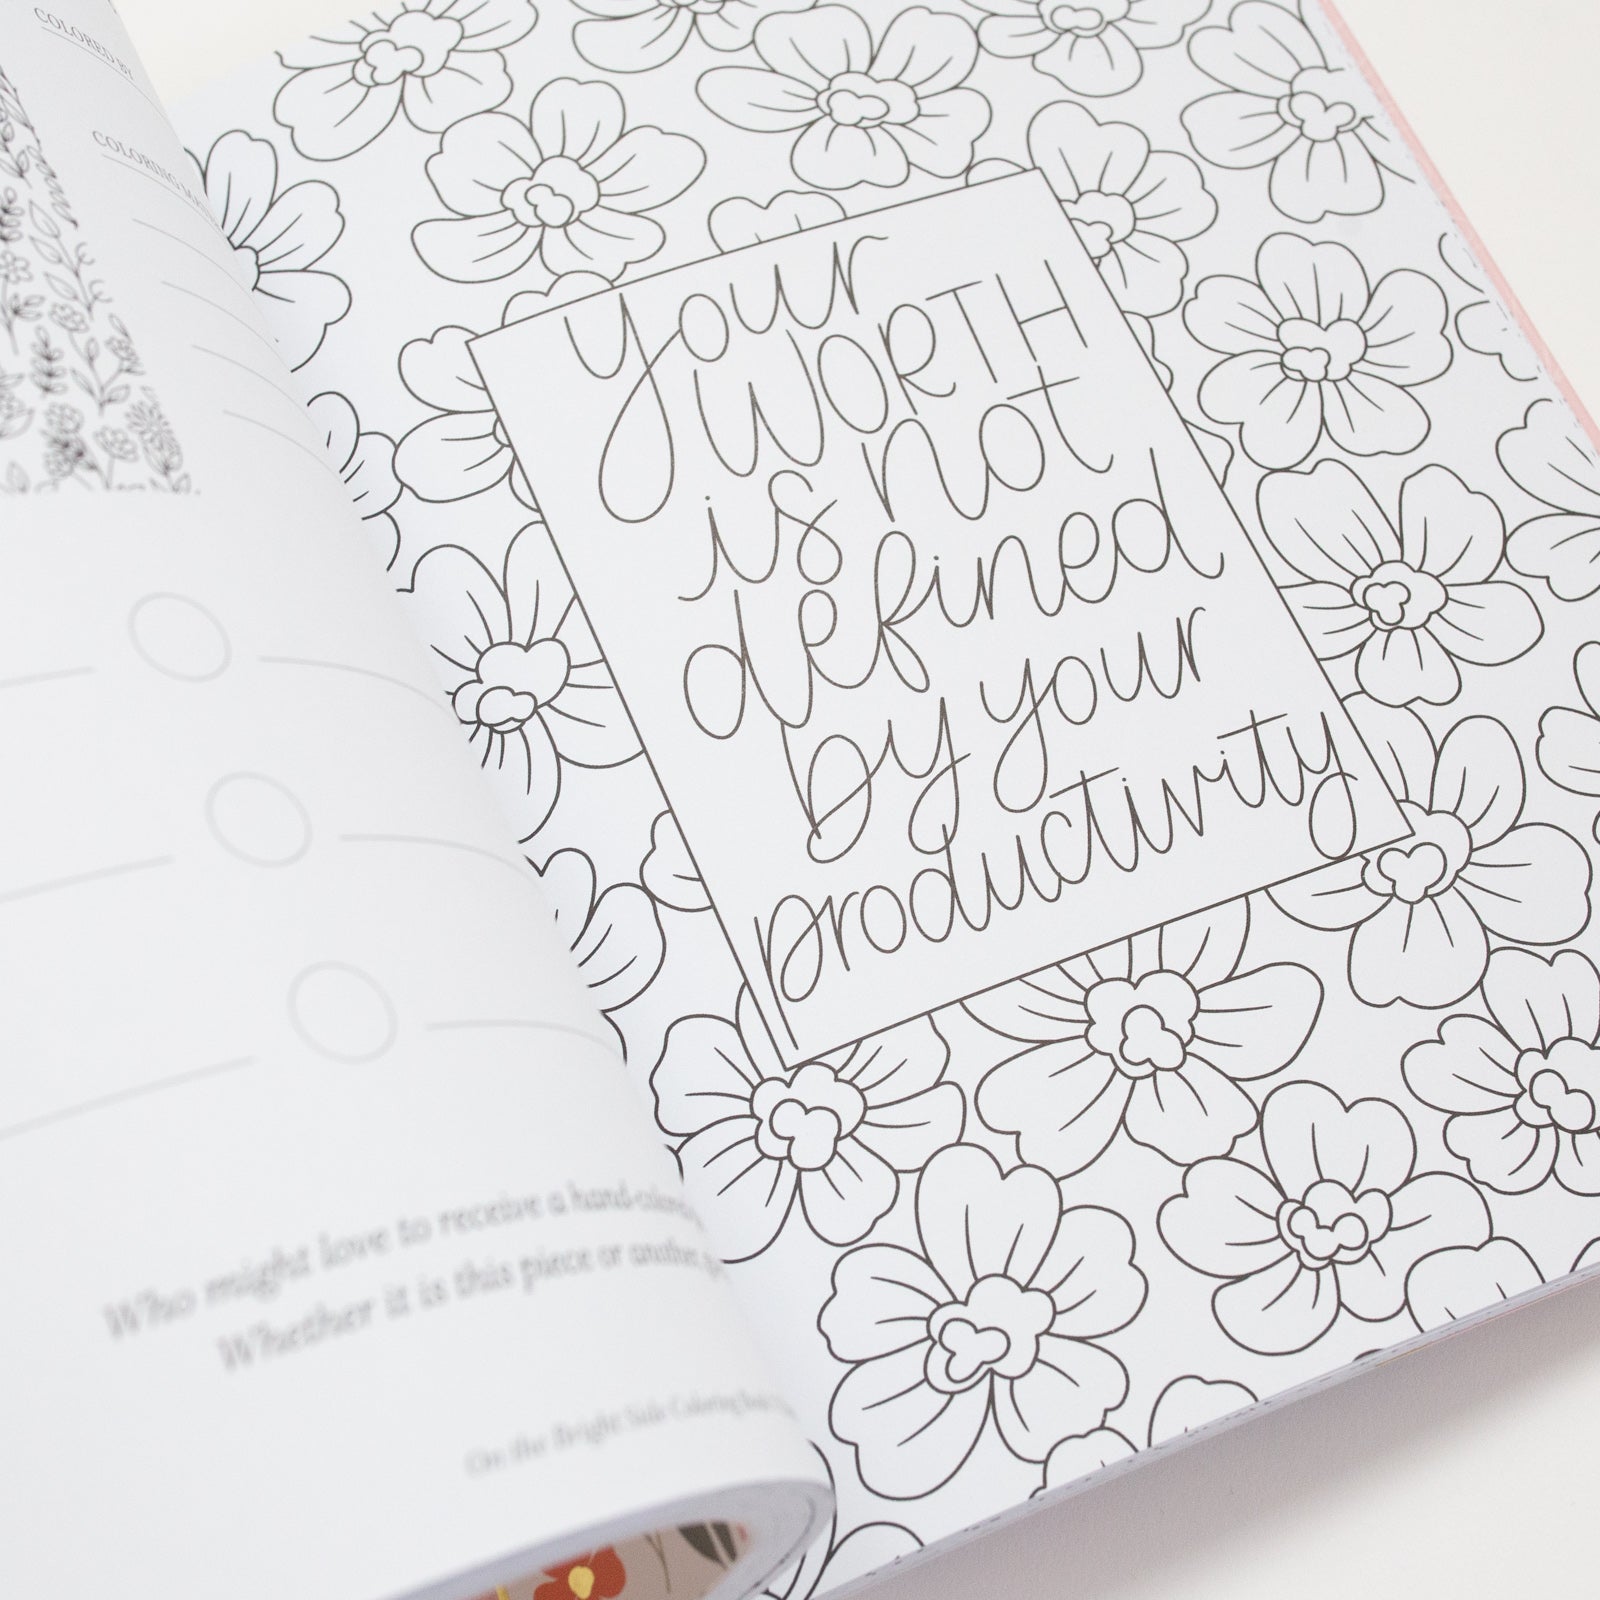 COLORED BY
COLORING
Who might love to receive a hand-colored
Whether it is this piece or another
On the Bright Side Coloring Book
your
WORTH
is not
defined
by your
productivity